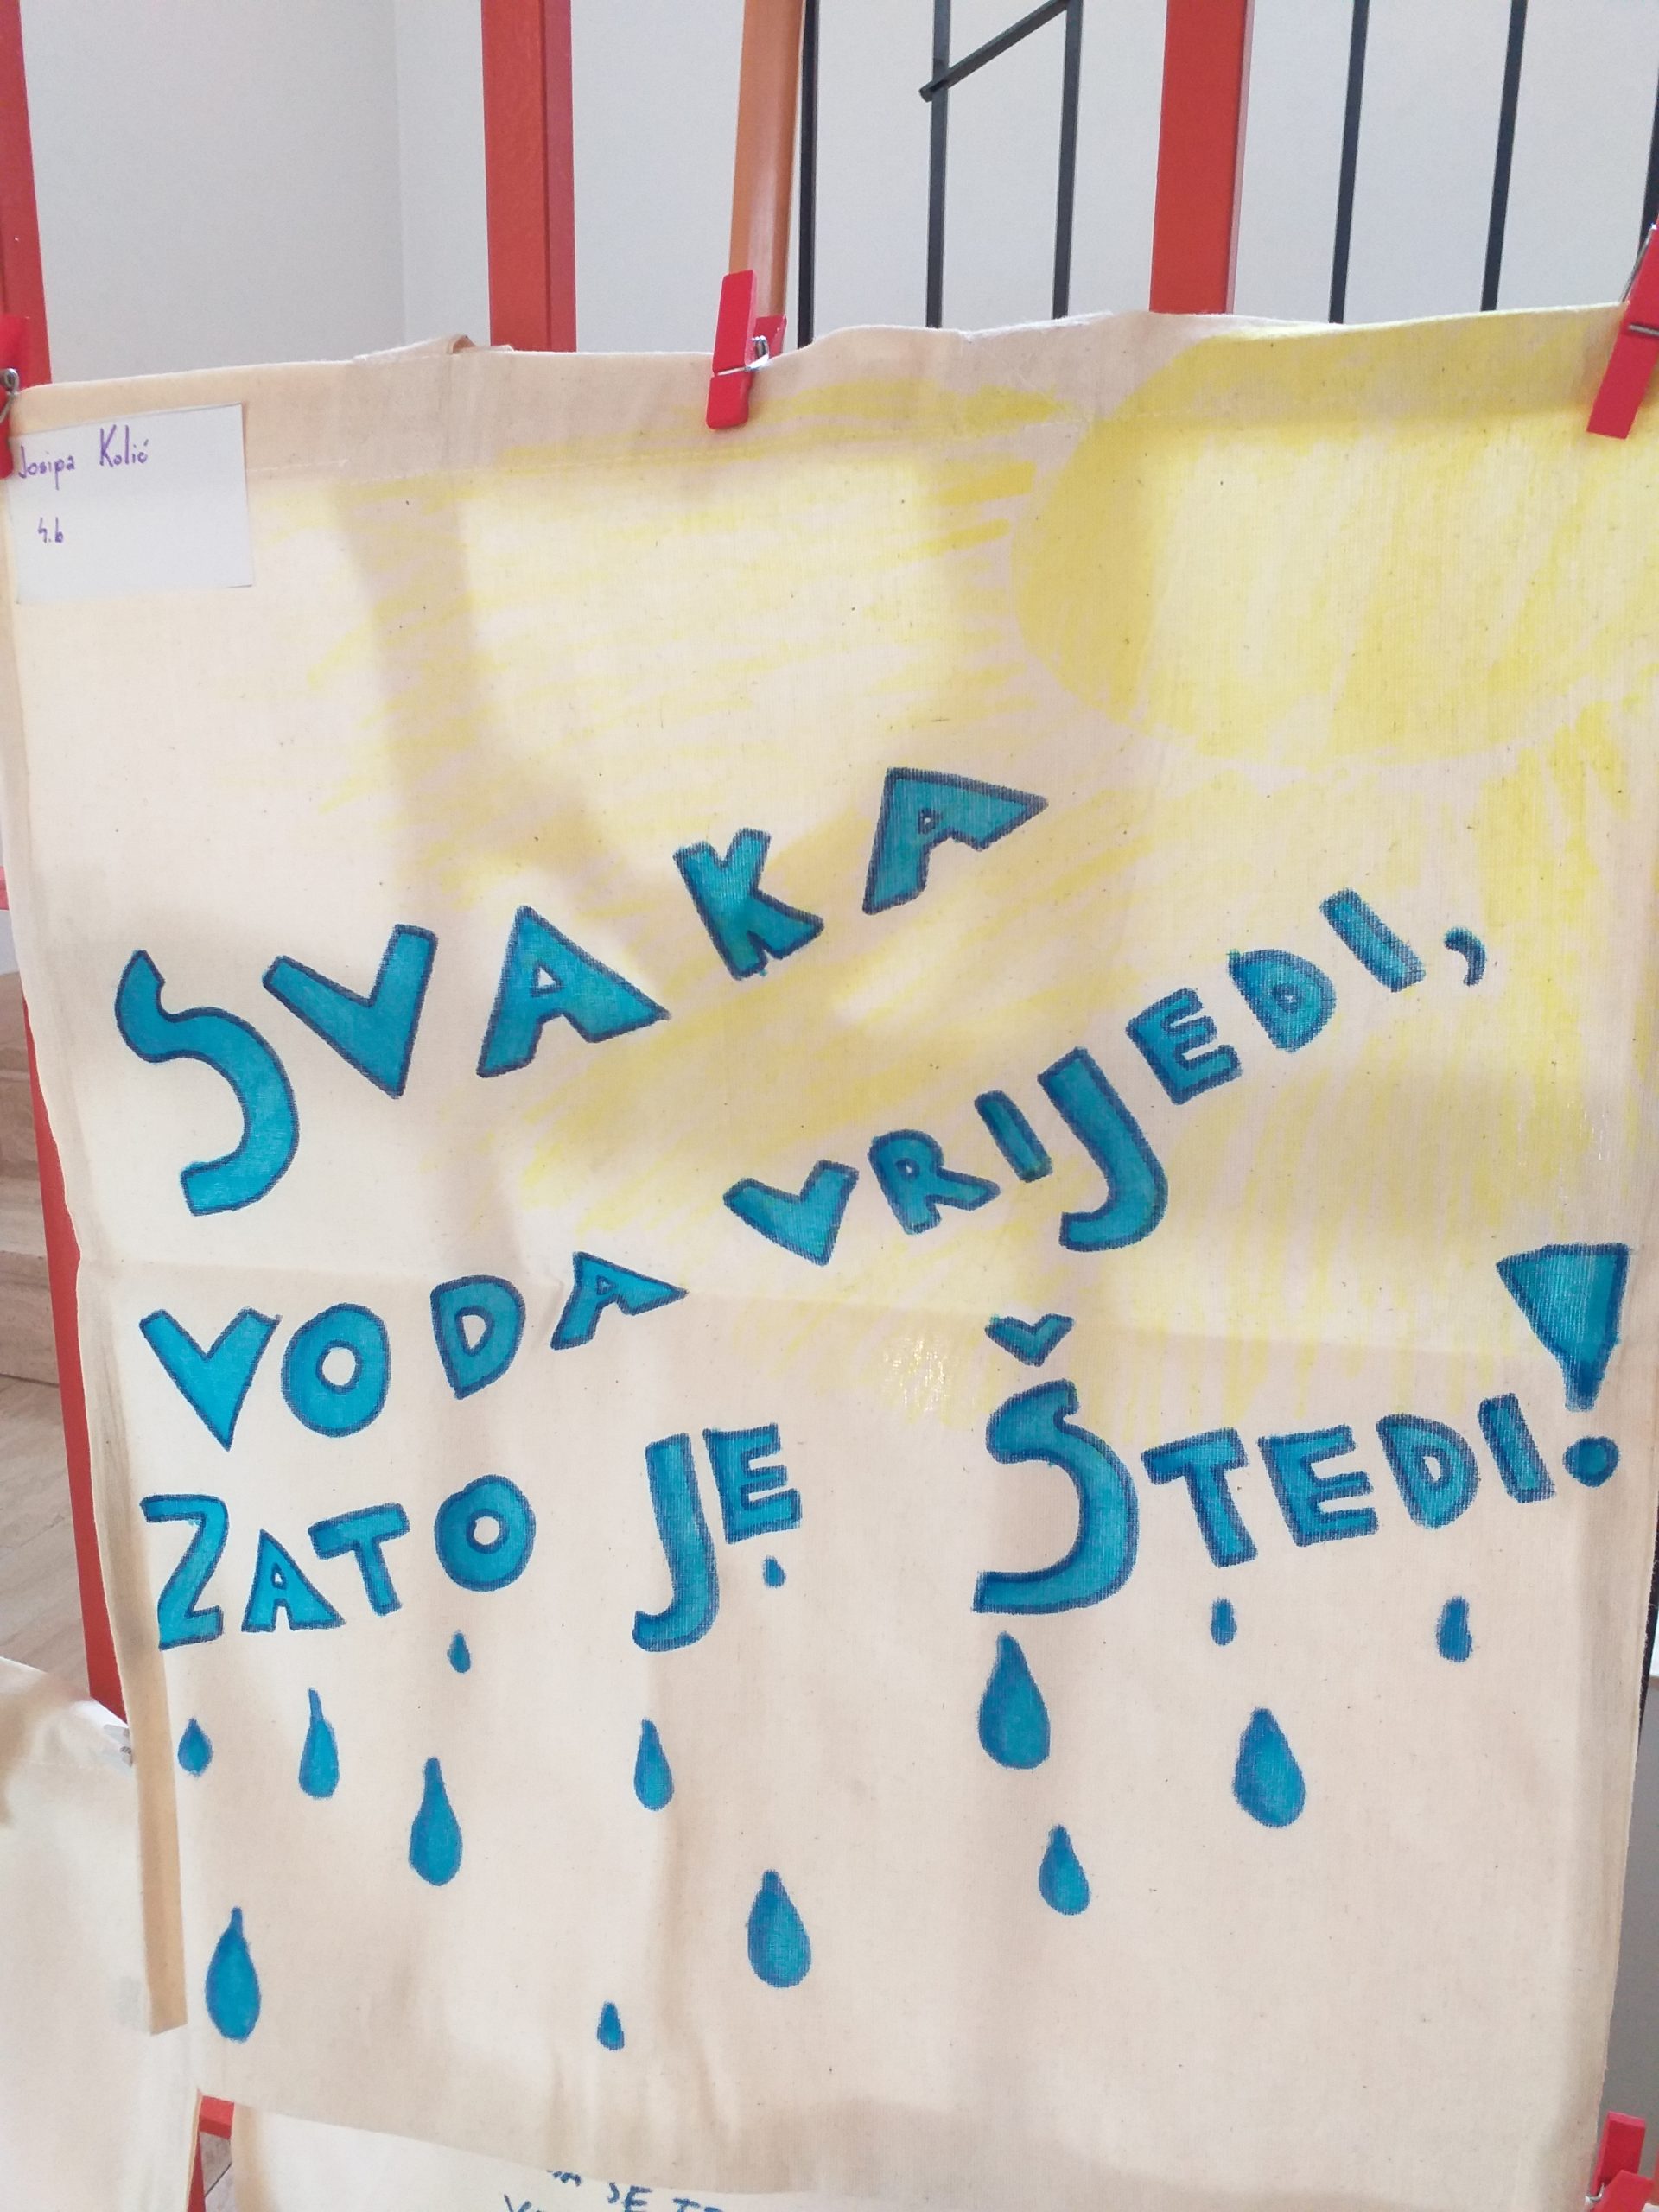 Josipa Kolić
4.b
SVAKA
VODA VRIJEDI,
ZATO JE ŠTEDI!
SE